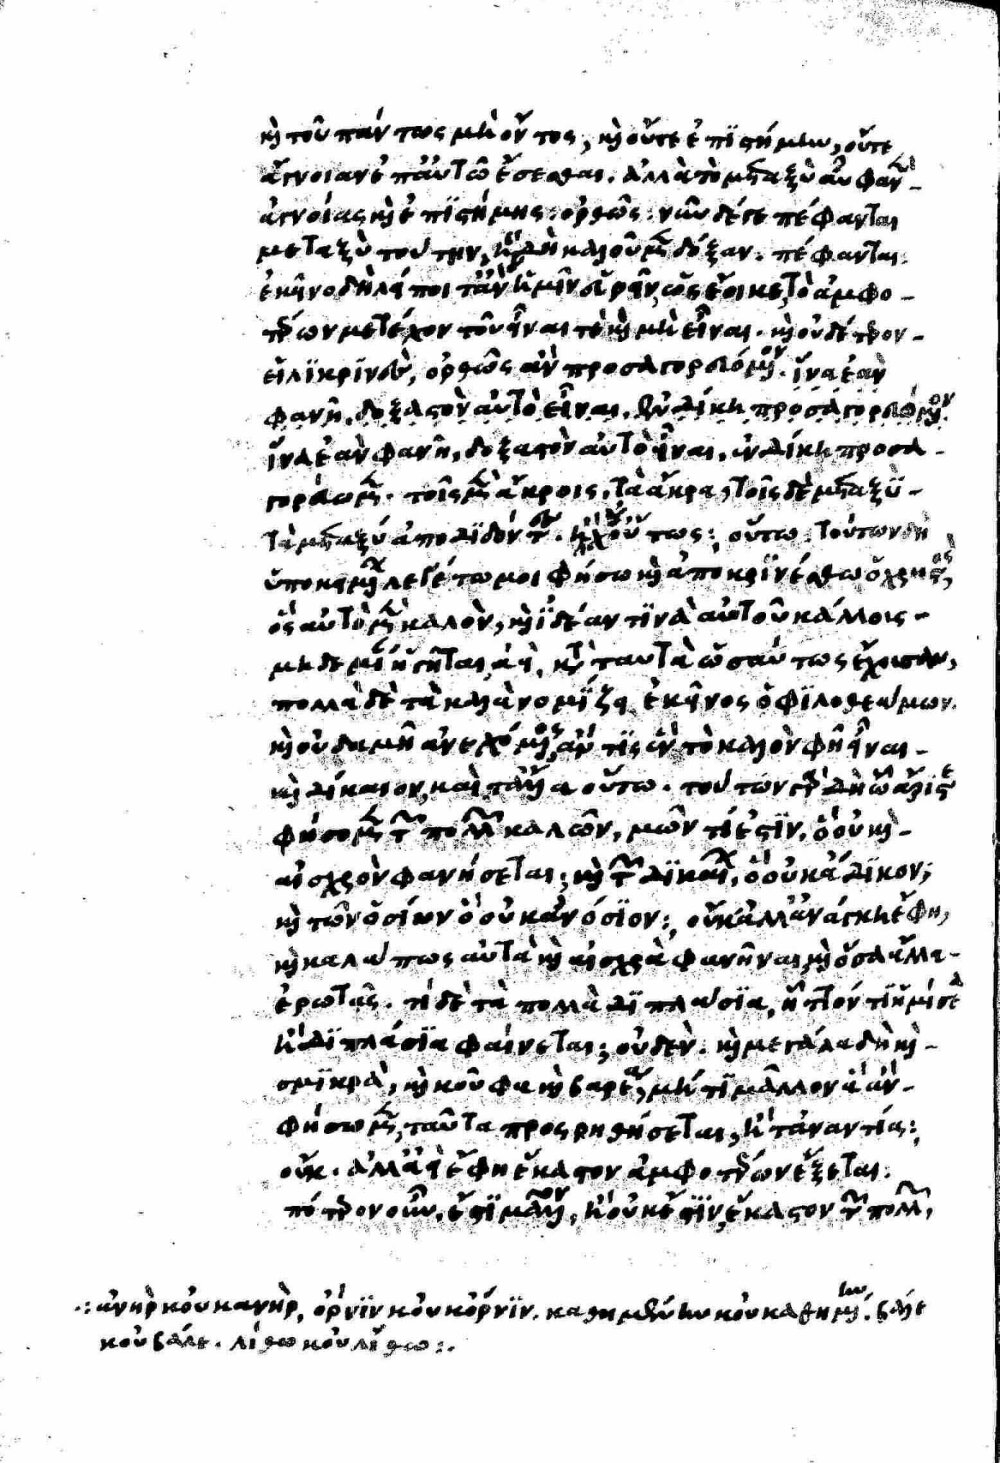 καὶ τοῦ πάντως μὴ ὄντος, καὶ οὔτε ἐπιστήμην, οὔτε
ἄγνοιαν ἐπ' αὐτῶ ἔσεσθαι. ἀλλὰ τὸ μεταξὺ αὖ φανὲν
ἀγνοίας καὶ ἐπιστήμης: ὀρθῶς: νῦν δέ γε πέφανται
μεταξὺ τούτοιν, ὃ δὴ καλοῦμεν δόξαν. πέφανται.
ἐκεῖνο δὴ λείποιτ' ἂν ἡμῖν εὑρεῖν, ὡς ἔοικε, τὸ ἀμφο-
τέρων μετέχον τοῦ εἶναί τε καὶ μὴ εἶναι. καὶ οὐδέτερον
εἰλικρινὲς, ὀρθῶς ἂν προσαγορευόμενον. ἵνα ἐὰν
φανῆ, δοξαστὸν αὐτὸ εἶναι, ἐν δίκη προσαγορευόμενον
ἵνα ἐὰν φανῆ, δοξαστὸν αὐτὸ εἶναι, ἐν δίκη προσα-
γορεύωμεν. τοῖς μὲν ἄκροις, τὰ ἄκρα, τοῖς δὲ μεταξὺ
τὰ μεταξύ ἀποδιδόντες. ἢ οὐχ οὕτως; οὕτω. τούτων δὴ
ὑποκειμένων λεγέτω μοι φήσω καὶ ἀποκρινέσθω ὁ χρηστὸς,
ὃς αὐτὸ μὲν καλὸν, καὶ ἰδέαν τινὰ αὐτοῦ κάλλους
μηδεμίαν ἡγεῖται, ἀεὶ κατὰ ταυτὰ ὡσαύτως ἔχουσαν,
πολλὰ δὲ τὰ καλὰ νομίζει, ἐκεῖνος ὁ φιλοθεάμων.
καὶ οὐδαμῆ ἀνεχόμενος, ἄν τις ἓν τὸ καλὸν φῆ εἶναι
καὶ δίκαιον, καὶ τἄλλα οὕτω. τούτων γὰρ δὴ ὦ ἄριστε
φήσομεν τῶν πολλῶν καλῶν, μῶν τί ἐστιν, ὃ οὐκ
αἰσχρὸν φανήσεται; καὶ τῶν δικαίων, ὃ οὐκ ἄδικον;
καὶ τῶν ὁσίων ὃ οὐκ ἀνόσιον; οὔκ ἀλλ' ἀνάγκη ἔφη,
καὶ καλά πως αὐτὰ καὶ αἰσχρὰ φανῆναι, καὶ ὅσα ἄλλα
ἐρωτᾶς. τί δὲ τὰ πολλὰ διπλάσια, ἧττόν τι ἡμίσεα
ἢ διπλάσια φαίνεται; οὐδέν. καὶ μεγάλα δὴ καὶ
σμικρὰ, καὶ κοῦφα καὶ βαρέα, μή τι μᾶλλον ἃ ἂν
φήσωμεν, ταῦτα προσρηθήσεται, ἢ τἀναντία;
οὔκ. ἀλλ' ἀεὶ ἔφη ἕκαστον ἀμφοτέρων ἕξεται.
πότερον οὖν, ἔστι μᾶλλον, ἢ οὐκ ἔστιν, ἕκαστον τῶν πολλῶν,
.: ἀνὴρ κοὐκ ἀνὴρ, ὄρνιν κοὐκ ὄρνιν. καθημένην κοὐ καθημένην. βάλε
κοὐ βάλε. λίθω κοὐ λίθω:.